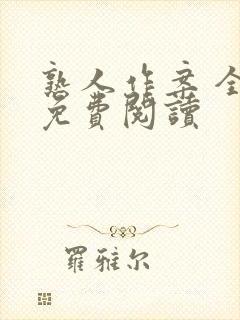 熟人作案全
免費閱讀
羅雅尔